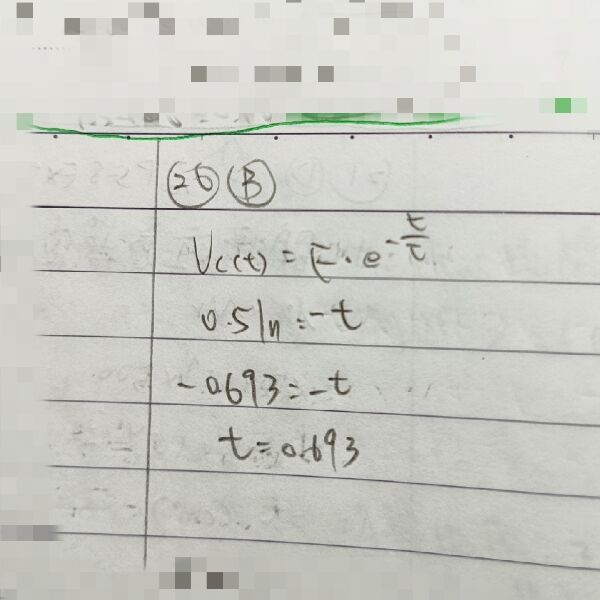 26 B
Vc(t) = E · e^-t/τ
0.5 ln = -t
-0.693 = -t
t = 0.693